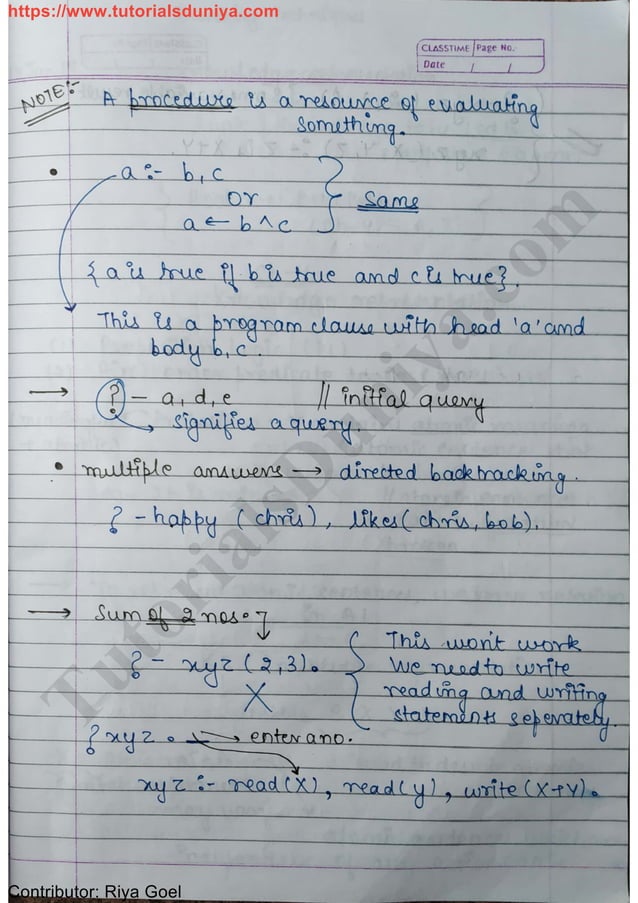 https://www.tutorialsduniya.com
CLASSTIME Page No.
Date / /
NOTE:-
A procedure is a resource of evaluating
something.
• a :- b, c
or
a ← b ^ c
Same
{ a is true if b is true and c is true}.
This is a program clause with head 'a' and
body b, c.
→ ? - a, d, e // initial query
signifies a query.
• multiple answers → directed backtracking.
? - happy (chris), likes( chris, bob).
→ Sum of 2 nos.
? - xyz (2,3).
X
This won't work
We need to write
reading and writing
statements seperately.
? xyz. → enter a no.
xyz :- read(X), read(y), write (X+Y).
TutorialsDuniya.com
Contributor: Riya Goel